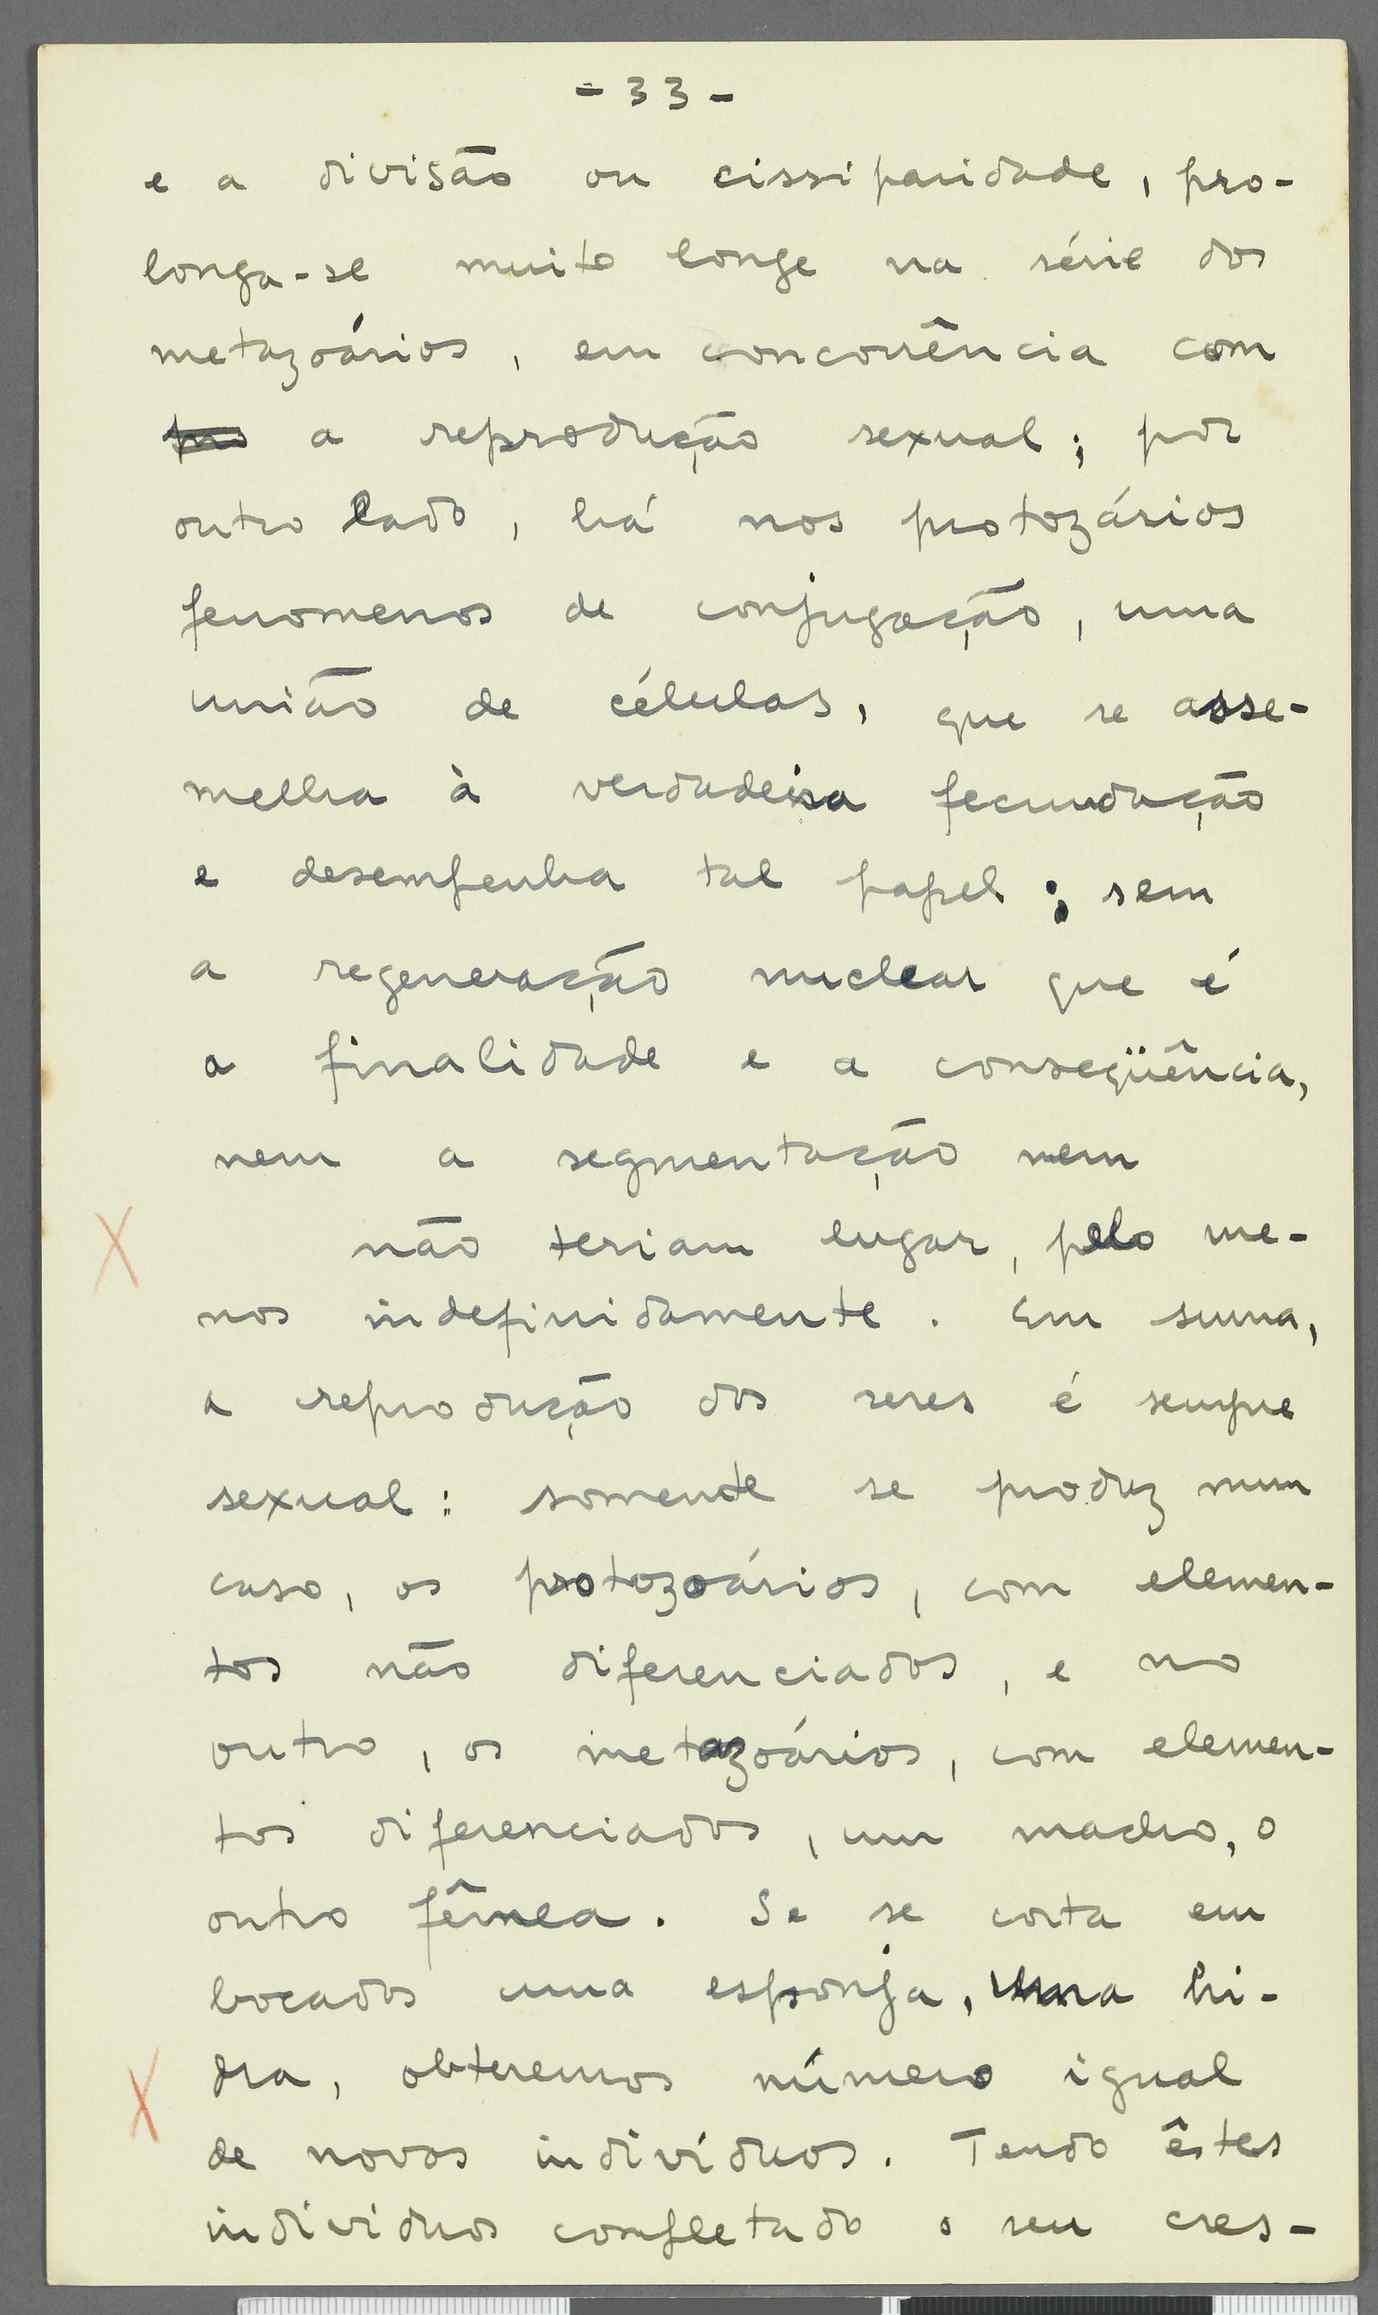 - 33 -
e a divisão ou cissiparidade, pro-
longa-se muito longe na série dos
metazoários, em concorrência com
a reprodução sexual; por
outro lado, há nos protozários
fenomenos de conjugação, uma
união de células, que se asse-
melha à verdadeira fecundação
e desempenha tal papel; sem
a regeneração nuclear que é
a finalidade e a conseqüência,
nem a segmentação nem
não teriam lugar, pelo me-
nos indefinidamente. Em suma,
a reprodução dos seres é sempre
sexual: somente se produz num
caso, os protozoários, com elemen-
tos não diferenciados, e no
outro, os metazoários, com elemen-
tos diferenciados, um macho, o
outro fêmea. Se se corta em
bocados uma esponja, uma hi-
dra, obteremos número igual
de novos indivíduos. Tendo êstes
individuos completado o seu cres-